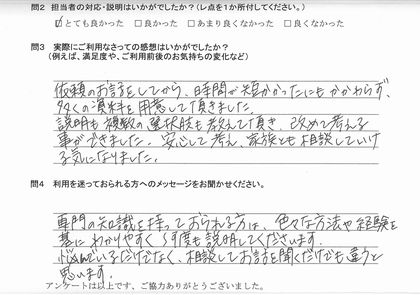 問2 担当者の対応・説明はいかがでしたか?(レ点を1か所付してください。)
☑とても良かった □良かった □あまり良くなかった □良くなかった
問3 実際にご利用なさっての感想はいかがでしたか?
(例えば、満足度や、ご利用前後のお気持ちの変化など)
依頼のお話をしてから、時間が短かかったにもかかわらず、
多くの資料を用意して頂きました。
説明も複数の選択肢も教えて頂き、改めて考える
事ができました。安心して考え、家族とも相談していけ
る気になりました。
問4 利用を迷っておられる方へのメッセージをお聞かせください。
専門の知識を持っておられる方は、色々な方法や経験を
基に わかりやすく 何度も説明してくださいます。
悩んでいるだけでなく、相談してお話を聞くだけでも違うと
思います。
アンケートは以上です、ご協力ありがとうございました。